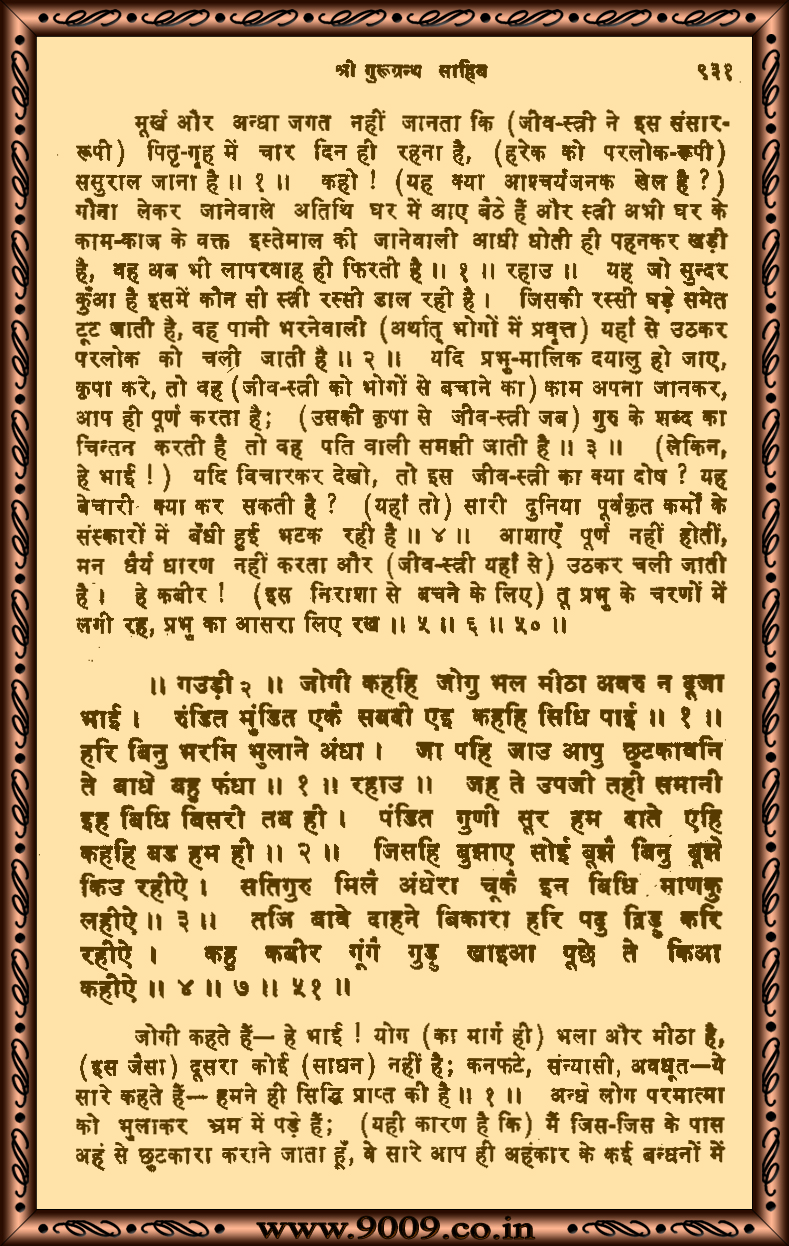 श्री गुरूग्रन्थ साहिब ९३१
मूर्ख और अन्धा जगत नहीं जानता कि (जीव-स्त्री ने इस संसार-
रूपी) पितृ-गृह में चार दिन ही रहना है, (हरेक को परलोक-रूपी)
ससुराल जाना है ॥ १ ॥ कहो ! (यह क्या आश्चर्यजनक खेल है ?)
गौना लेकर जानेवाले अतिथि घर में आए बैठे हैं और स्त्री अभी घर के
काम-काज के वक्त इस्तेमाल की जानेवाली आधी धोती ही पहनकर खड़ी
है, वह अब भी लापरवाह ही फिरती है ॥ १ ॥ रहाउ ॥ यह जो सुन्दर
कुँआ है इसमें कौन सी स्त्री रस्सी डाल रही है । जिसकी रस्सी घड़े समेत
टूट जाती है, वह पानी भरनेवाली (अर्थात् भोगों में प्रवृत्त) यहाँ से उठकर
परलोक को चली जाती है ॥ २ ॥ यदि प्रभु-मालिक दयालु हो जाए,
कृपा करे, तो वह (जीव-स्त्री को भोगों से बचाने का) काम अपना जानकर,
आप ही पूर्ण करता है; (उसकी कृपा से जीव-स्त्री जब) गुरु के शब्द का
चिन्तन करती है तो वह पति वाली समझी जाती है ॥ ३ ॥ (लेकिन,
हे भाई !) यदि विचारकर देखो, तो इस जीव-स्त्री का क्या दोष ? यह
बेचारी क्या कर सकती है ? (यहाँ तो) सारी दुनिया पूर्वकृत कर्मों के
संस्कारों में बँधी हुई भटक रही है ॥ ४ ॥ आशाएँ पूर्ण नहीं होतीं,
मन धैर्य धारण नहीं करता और (जीव-स्त्री यहाँ से) उठकर चली जाती
है । हे कबीर ! (इस निराशा से बचने के लिए) तू प्रभु के चरणों में
लगी रह, प्रभु का आसरा लिए रख ॥ ५ ॥ ६ ॥ ५० ॥
॥ गउड़ी २ ॥ जोगी कहहि जोगु भल मीठा अवरु न दूजा
भाई । रुंडित मुंडित एकै सबदी एइ कहहि सिधि पाई ॥ १ ॥
हरि बिनु भरमि भुलाने अंधा । जा पहि जाउ आपु छुटकावनि
ते बाधे बहु फंधा ॥ १ ॥ रहाउ ॥ जह ते उपजी तही समानी
इह बिधि बिसरी तब ही । पंडित गुणी सूर हम दाते एहि
कहहि बड हम ही ॥ २ ॥ जिसहि बुझाए सोई बूझै बिनु बूझे
किउ रहीऐ । सतिगुरु मिलै अंधेरा चूकै इन बिधि माणकु
लहीऐ ॥ ३ ॥ तजि बावे दाहने बिकारा हरि पदु द्रिड़ु करि
रहीऐ । कहु कबीर गूंगै गुड़ु खाइआ पूछे ते किआ
कहीऐ ॥ ४ ॥ ७ ॥ ५१ ॥
जोगी कहते हैं— हे भाई ! योग (का मार्ग ही) भला और मीठा है,
(इस जैसा) दूसरा कोई (साधन) नहीं है; कनफटे, संन्यासी, अवधूत—ये
सारे कहते हैं— हमने ही सिद्धि प्राप्त की है ॥ १ ॥ अन्धे लोग परमात्मा
को भुलाकर भ्रम में पड़े हैं; (यही कारण है कि) मैं जिस-जिस के पास
अहं से छुटकारा कराने जाता हूँ, वे सारे आप ही अहंकार के कई बन्धनों में
www.9009.co.in